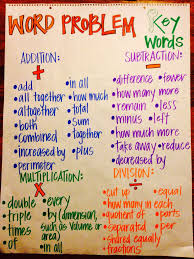 WORD PROBLEM
Key Words
ADDITION:
+
•add •in all
•all together •how much
•altogether •total
•both •sum
•combined •together
•increased by •plus
•perimeter
SUBTRACTION:
-
•difference •fewer
•how many more
•how much more
•less •remain
•minus •left
•take away •reduce
•decreased by
MULTIPLICATION:
×
•double •every
•triple •by (dimension,
•times such as volume or area)
•of •in all
DIVISION:
÷
•cut up •equal
•how many in each
•quotient of •parts
•separated •per
•shared equally
•fractions